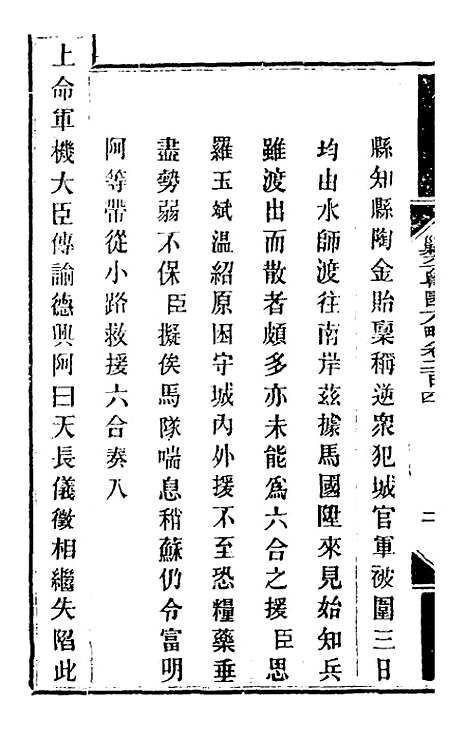 縣知縣陶金貽稟稱逆衆犯城官軍被圍三日
均由水師渡往南岸茲據馬國陞來見始知兵
雖渡出而散者頗多亦未能爲六合之援臣思
羅玉斌溫紹原困守城內外援不至恐糧藥垂
盡勢弱不保臣擬俟馬隊喘息稍蘇仍令富明
阿等帶從小路救援六合奏入
上命軍機大臣傳諭德興阿曰天長儀徵相繼失陷此
方略卷二百四
二